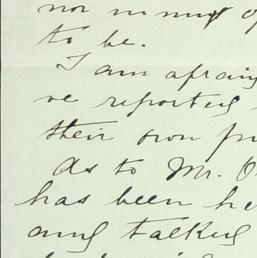 nor in my o
to be.
I am afraid
ve reported
their own pr
As to Mr. O
has been he
and talked